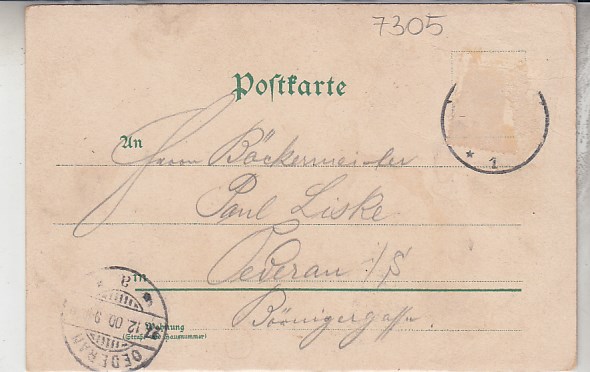 7305
Postkarte
* 1
An Herrn Bäckermeister
Paul Liske
in Oederan i/S
Wohnung
(Straße und Hausnummer)
OEDERAN
12.00.9
* a *